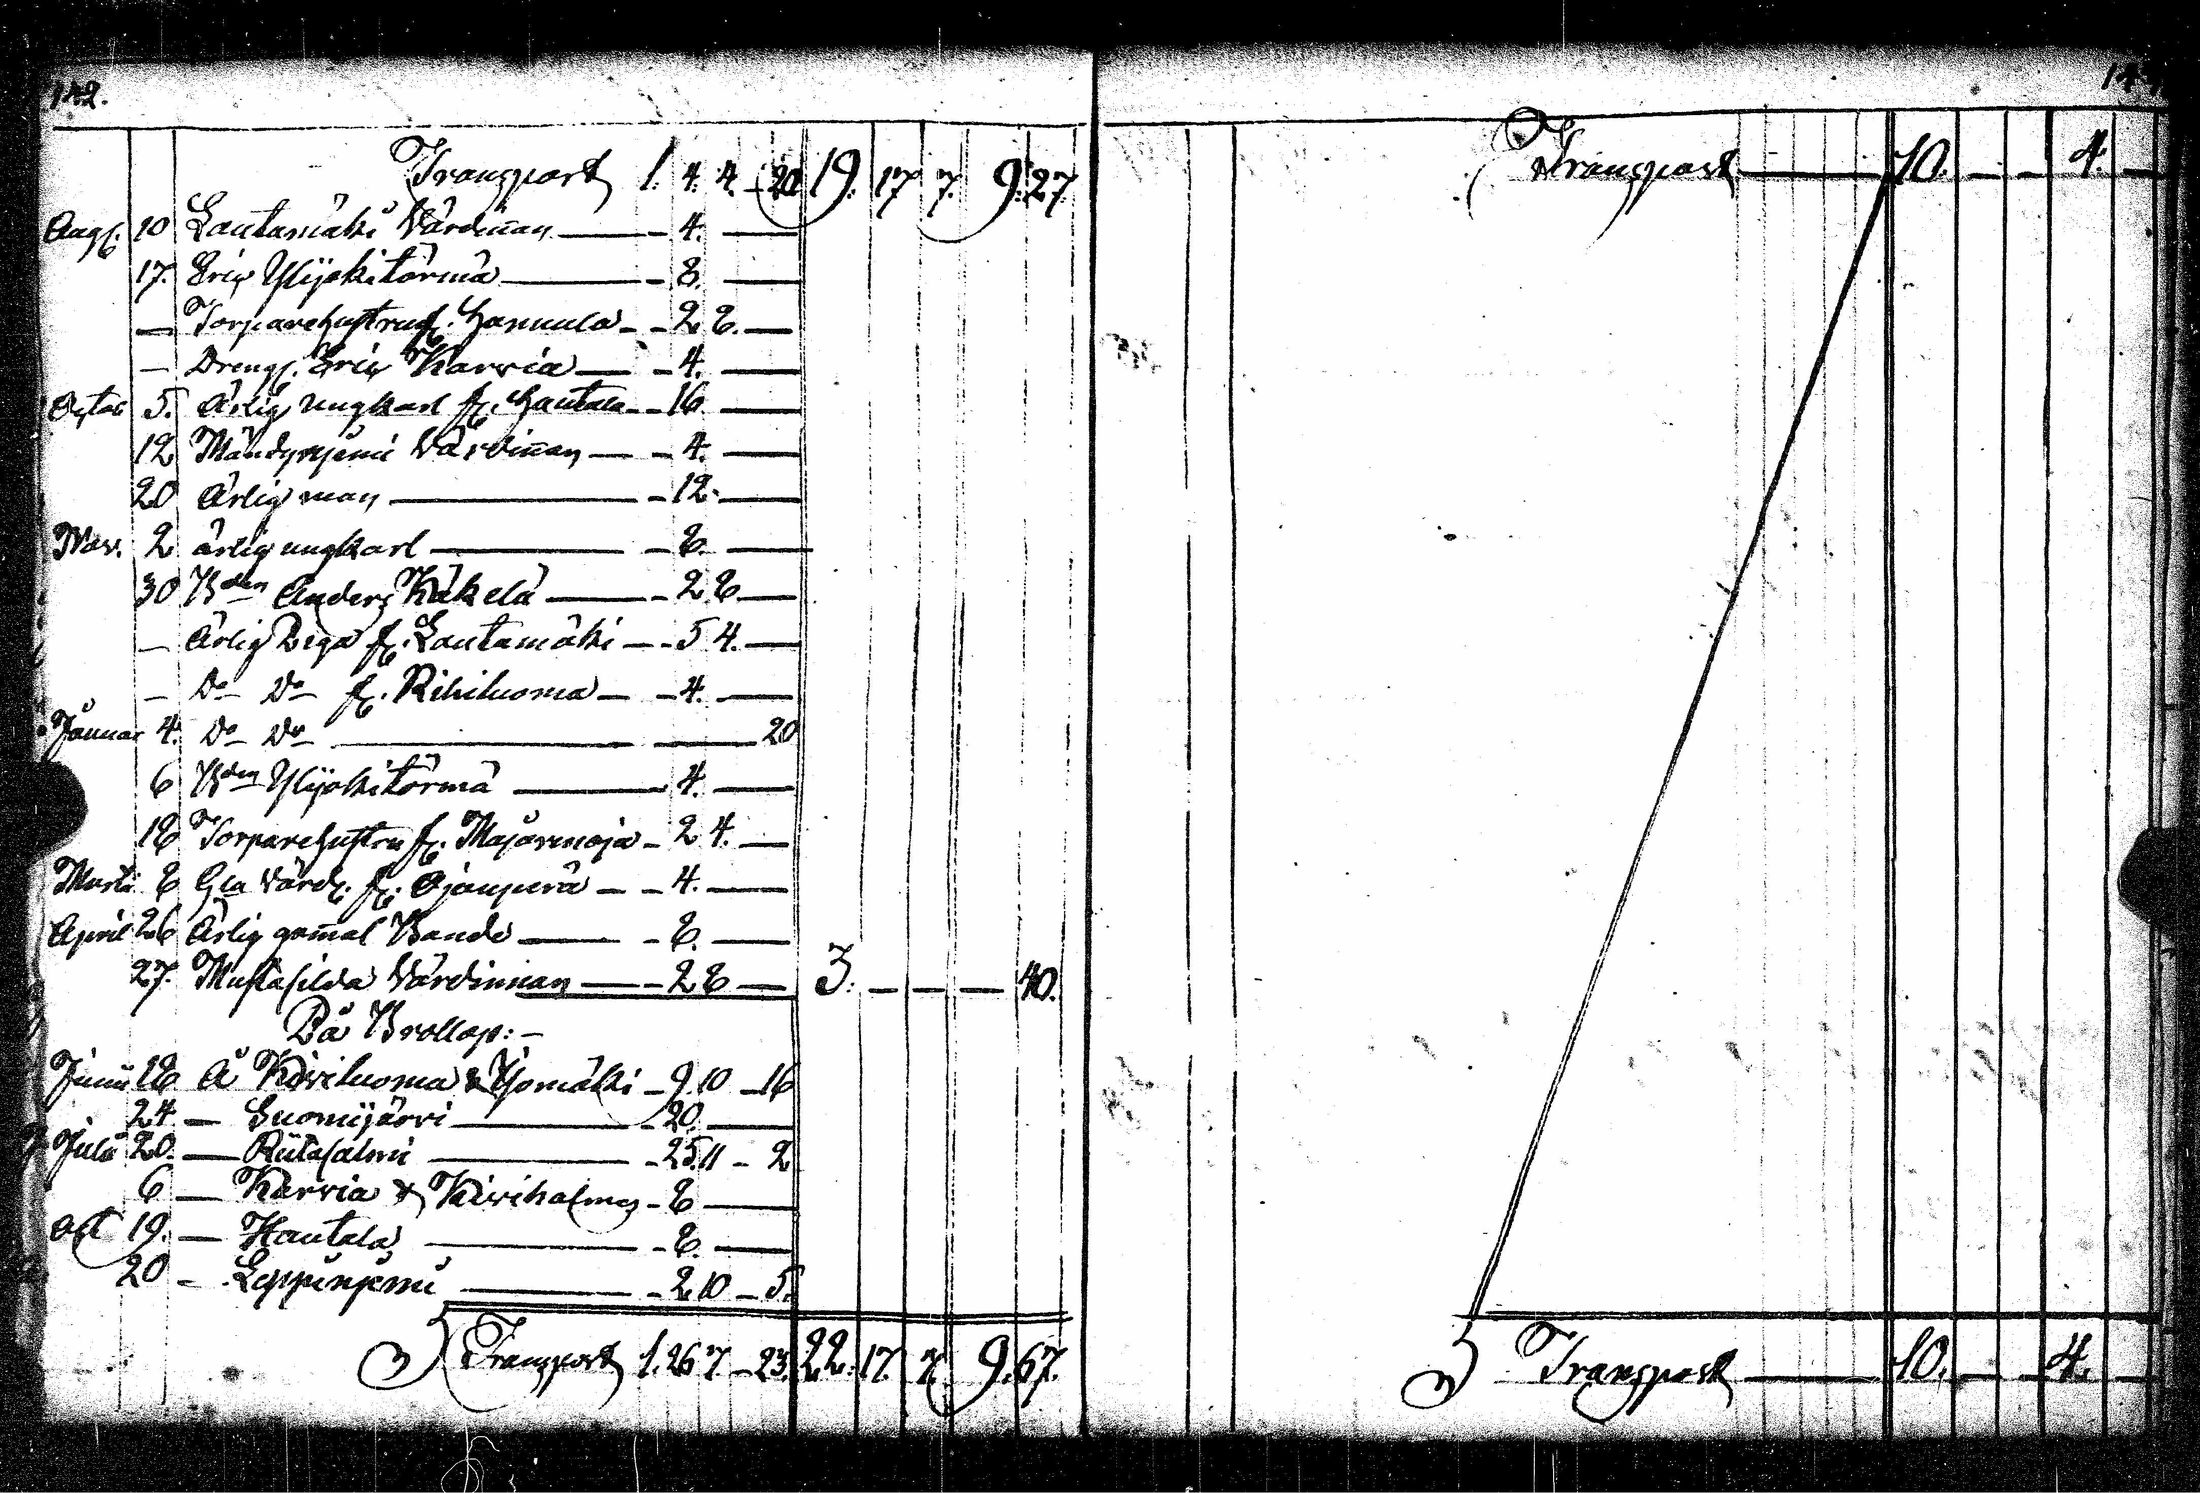 142.
Transport 1. 4. 4. - 20 19. 17 7. 9. 27
Augs. 10 Lautamäki Värdiñan — - 4. —
17. Eric Ylijokitörmä — - 8. —
— Torparehustru fr. Hannula - - 2 8. —
— Drengs. Eric Karvia — - 4. —
Octob 5. Ärlig ungkarl fr. Hautala - - 16 —
12 Mändynjemi Värdiñan — - 4. —
20 Ärlig man — - 12. —
Nov. 2 ärlig ungkarl — - 8. —
30 Bden Anders Käkelä — - 2 8. —
— Ärlig Piga fr. Lautamäki — - 5 4. —
— Do Do fr. Rihiluoma — - 4. —
Januar 4. Do Do — — 20
6 Bden Ylijokitörmä — 4. —
18 Torparehustru fr. Majaremoja - 2 4. —
Marti 8 Gla Värd. fr. Ojanperä — - 4. —
April 26 Ärlig gam̄al Bonde — - 8. —
27. Mustasilda Värdinnan — - 2 8 — 3. — — — 40.
På Brollop: -
Junii 18 Å Kiviluoma & Yjomäki - 9. 10 - 16
24 — Suomijärvi — 20. —
Julii 20. — Riitasalmi — - 25. 11 - 2
6 — Karvia & Kiviholmen - 8 —
Oct 19. — Hautala — - 8. —
20 - Leppinjemi — - 2 10 - 5.
Transport 1. 26 7 - 23. 22. 17. 7. 9. 67.
Transport — 10. — — 4. —
Transport — 10. — — 4. —